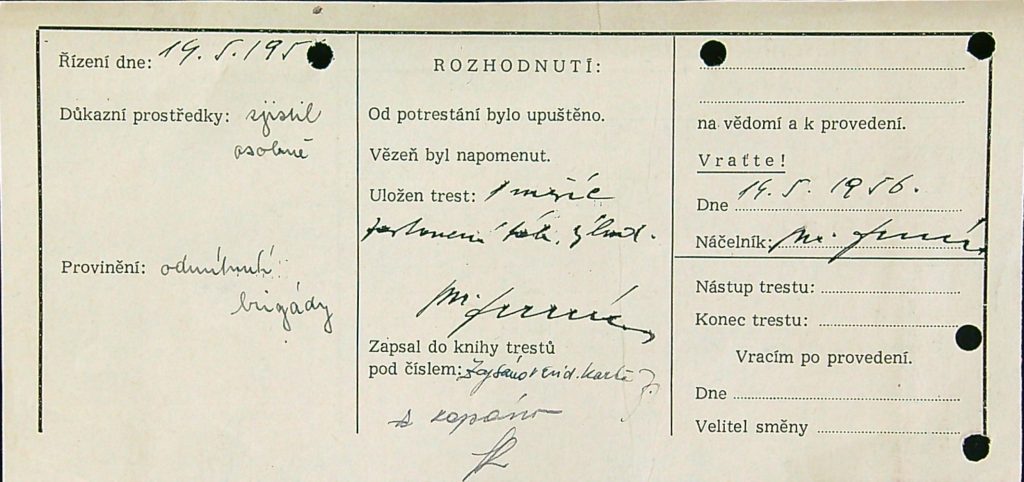 Řízení dne: 19. 5. 195
Důkazní prostředky: zjistil
osobně
Provinění: odmítnutí
brigády
ROZHODNUTÍ:
Od potrestání bylo upuštěno.
Vězeň byl napomenut.
Uložen trest: 1 měsíc
zastavení
Zapsal do knihy trestů
pod číslem:
na vědomí a k provedení.
Vraťte!
Dne 19. 5. 1956.
Náčelník:
Nástup trestu:
Konec trestu:
Vracím po provedení.
Dne
Velitel směny